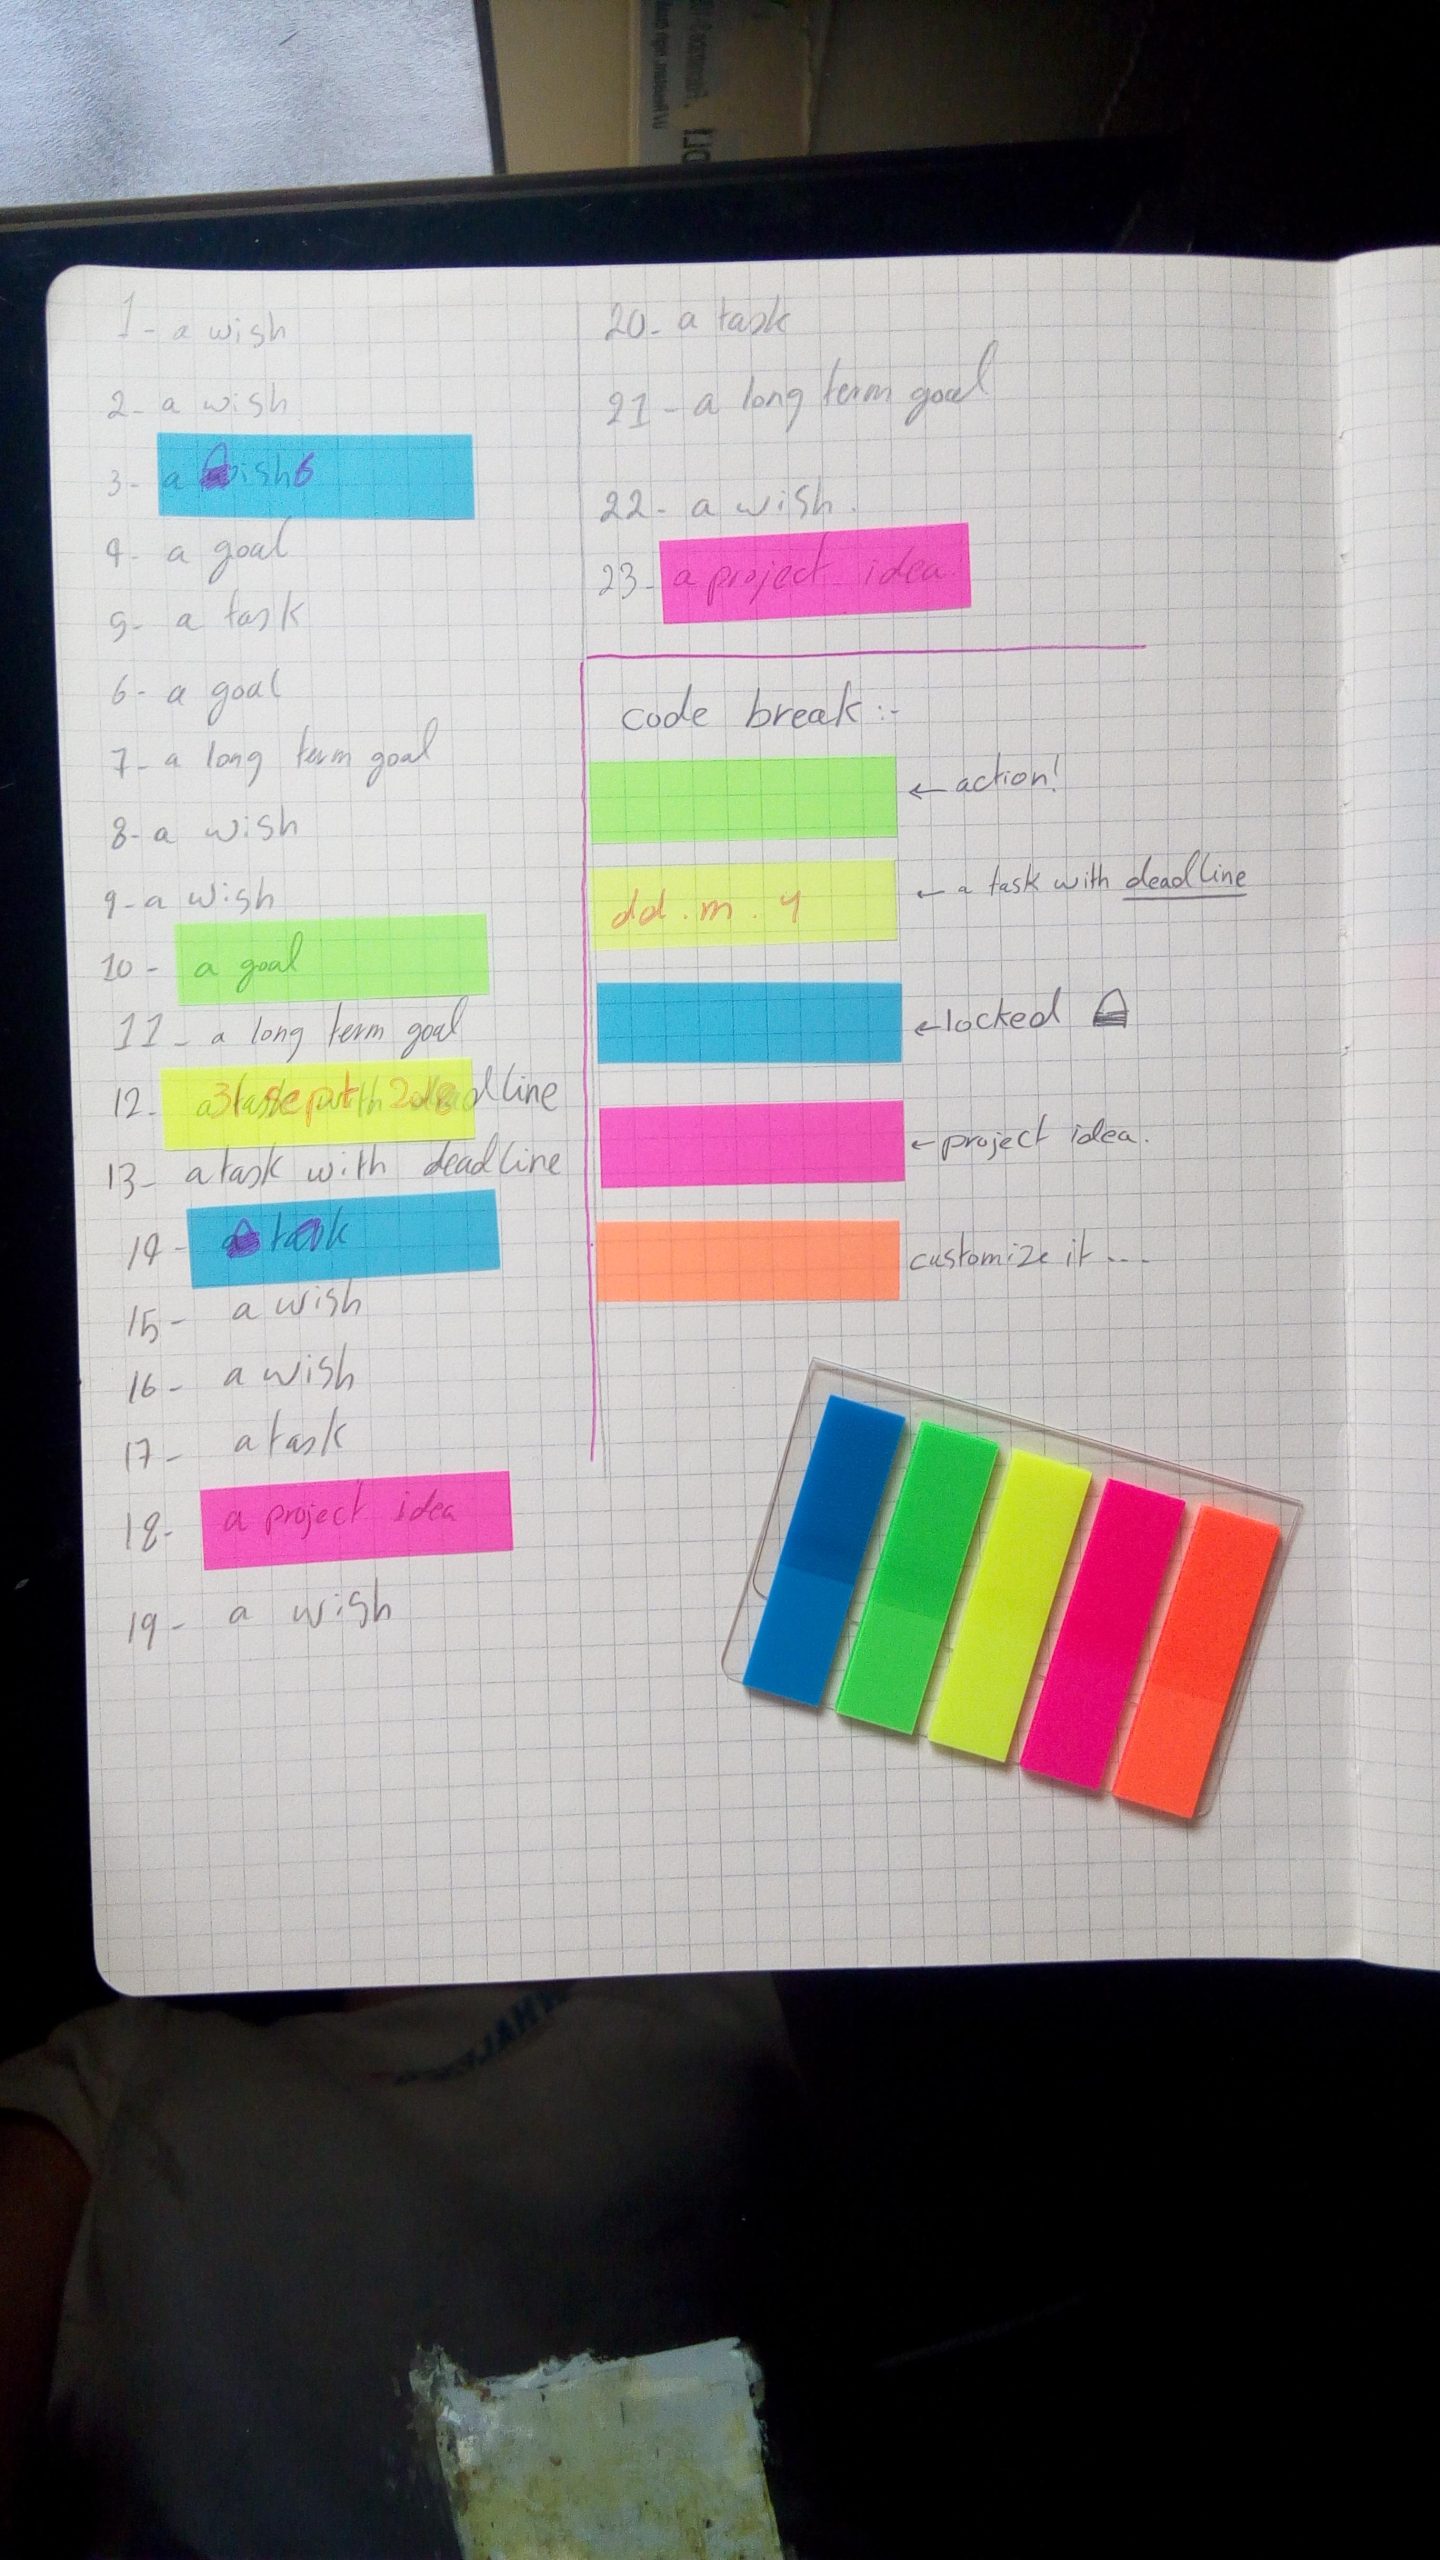 1- a wish
2- a wish
3- a wish 6
4- a goal
5- a task
6- a goal
7- a long term goal
8- a wish
9- a wish
10- a goal
11- a long term goal
12- a task with deadline
3 sept
13- a task with deadline
14- a task
15- a wish
16- a wish
17- a task
18- a project idea
19- a wish
20- a task
21- a long term goal
22- a wish.
23- a project idea
code break :-
← action!
dd . m . y ← a task with deadline
← locked
← project idea.
customize it ...